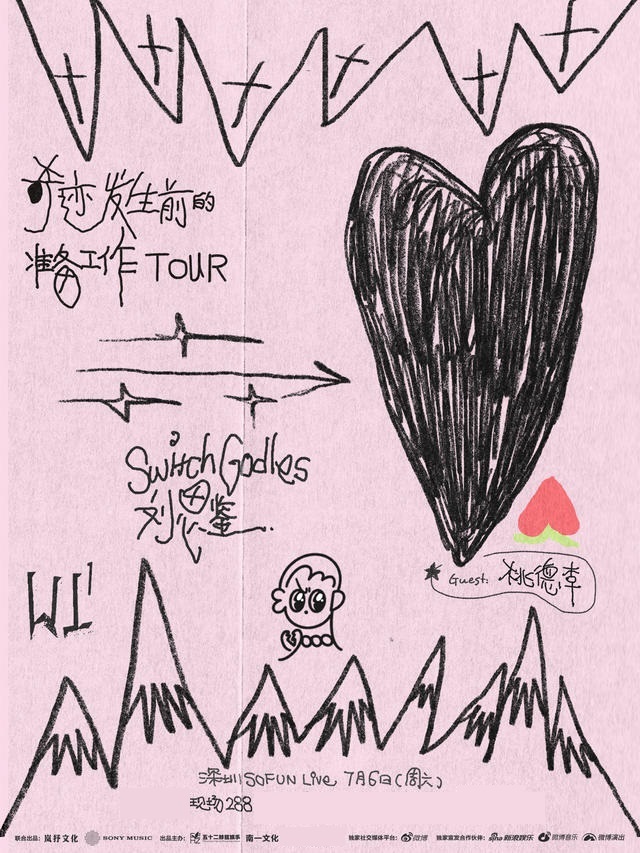 奇迹发生前的
准备工作 TOUR
Switch Godles
刘思鉴
Guest: 桃德李
深圳 SOFUN Live 7月6日(周六)
现场288
联合出品: 岚抒文化 SONY MUSIC 出品主办: 五十二赫兹娱乐 南一文化 独家社交媒体平台: 微博 独家宣发合作伙伴: sina新浪娱乐 微博音乐 微博演出